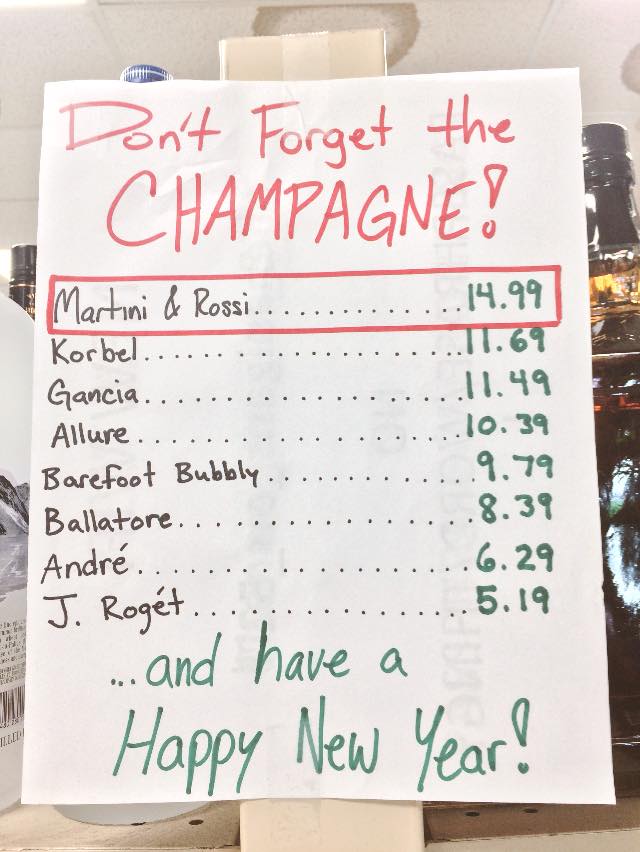 Don't Forget the
CHAMPAGNE!
Martini & Rossi..............14.99
Korbel......................11.69
Gancia......................11.49
Allure......................10.39
Barefoot Bubbly.............9.79
Ballatore...................8.39
André.......................6.29
J. Rogét....................5.19
...and have a
Happy New Year!